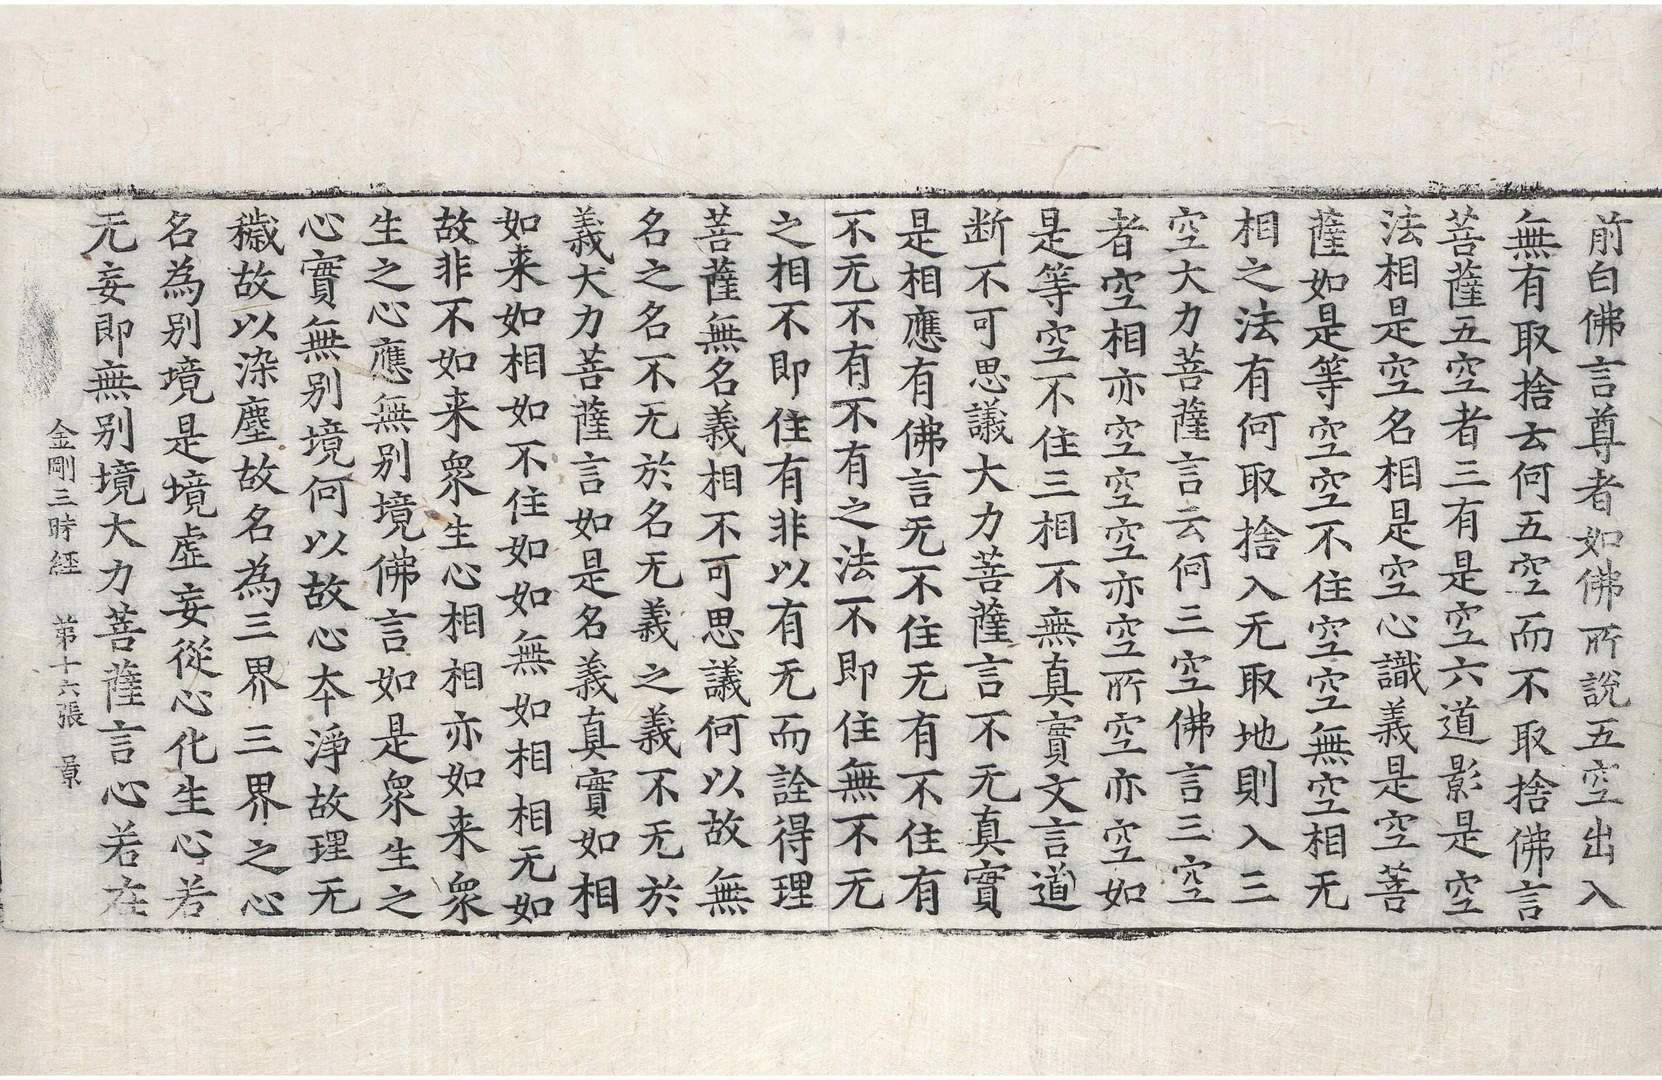 前白佛言尊者如佛所說五空出入
無有取捨云何五空而不取捨佛言
菩薩五空者三有是空六道影是空
法相是空名相是空心識義是空菩
薩如是等空空不住空空無空相无
相之法有何取捨入无取地則入三
空大力菩薩言云何三空佛言三空
者空相亦空空空亦空所空亦空如
是等空不住三相不無真實文言道
断不可思議大力菩薩言不无真實
是相應有佛言无不住无有不住有
不无不有不有之法不即住無不无
之相不即住有非以有无而詮得理
菩薩無名義相不可思議何以故無
名之名不无於名无義之義不无於
義大力菩薩言如是名義真實如相
如来如相如不住如如無如相相无如
故非不如来衆生心相相亦如来衆
生之心應無别境佛言如是衆生之
心實無别境何以故心本淨故理无
穢故以染塵故名為三界三界之心
名為别境是境虛妄從心化生心若
无妄即無别境大力菩薩言心若在
金剛三昧經　第十六張　景